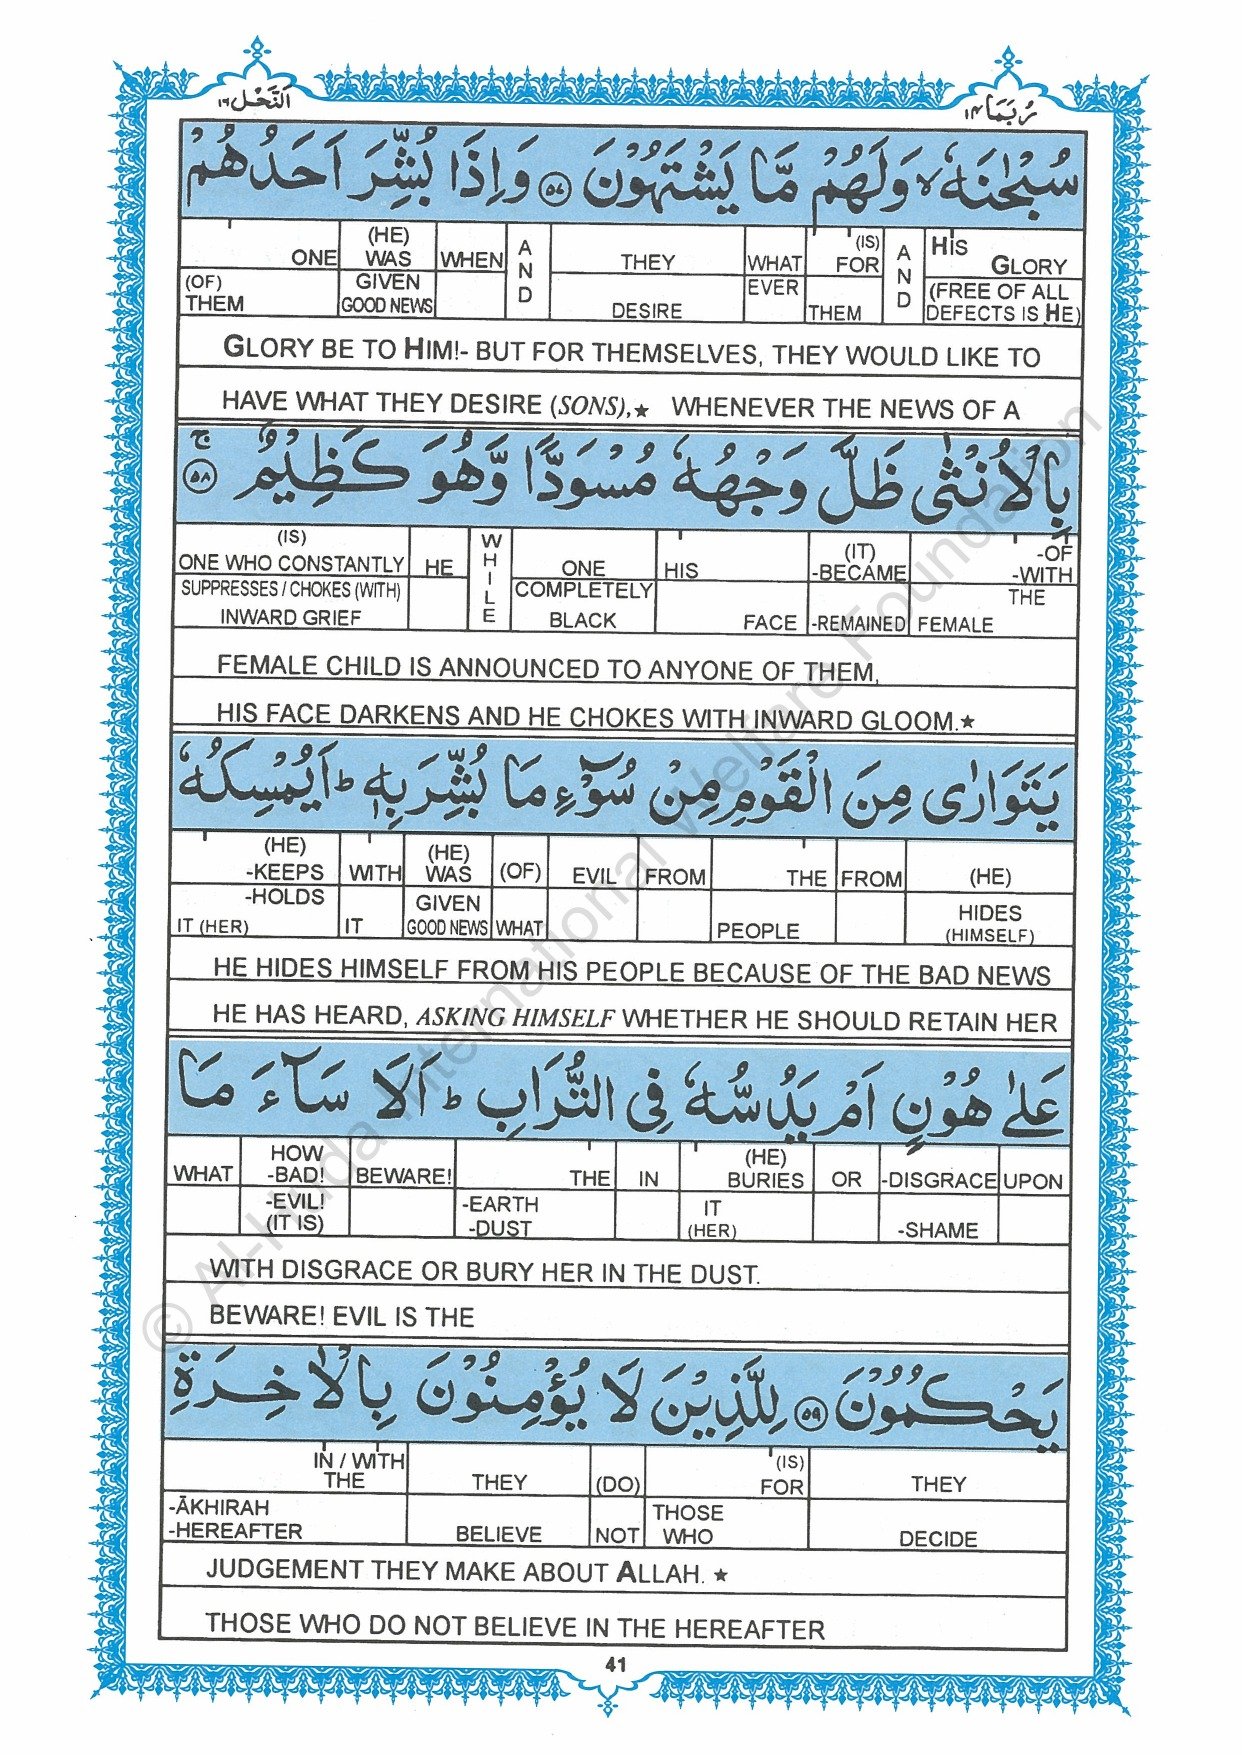 اَلنَّحْل ١٦
رُبَمَا ١٤
سُبْحٰنَهٗ ۙ وَلَهُمْ مَّا يَشْتَهُوْنَ ﴿٥٧﴾ وَاِذَا بُشِّرَ اَحَدُهُمْ
ONE (HE) WAS WHEN AND THEY WHAT (IS) FOR AND HIS GLORY
(OF) THEM GIVEN GOOD NEWS DESIRE EVER THEM (FREE OF ALL DEFECTS IS HE)
GLORY BE TO HIM!- BUT FOR THEMSELVES, THEY WOULD LIKE TO
HAVE WHAT THEY DESIRE (SONS),★ WHENEVER THE NEWS OF A
بِالْاُنْثٰى ظَلَّ وَجْهُهٗ مُسْوَدًّا وَّهُوَ كَظِيْمٌ ۚ ﴿٥٨﴾
(IS) ONE WHO CONSTANTLY HE WHILE ONE HIS (IT) -BECAME -OF -WITH
SUPPRESSES / CHOKES (WITH) INWARD GRIEF COMPLETELY BLACK FACE -REMAINED THE FEMALE
FEMALE CHILD IS ANNOUNCED TO ANYONE OF THEM,
HIS FACE DARKENS AND HE CHOKES WITH INWARD GLOOM.★
يَتَوَارٰى مِنَ الْقَوْمِ مِنْ سُوْٓءِ مَا بُشِّرَ بِهٖ ؕ اَيُمْسِكُهٗ
(HE) -KEEPS WITH (HE) WAS (OF) EVIL FROM THE FROM (HE)
-HOLDS IT (HER) IT GIVEN GOOD NEWS WHAT PEOPLE HIDES (HIMSELF)
HE HIDES HIMSELF FROM HIS PEOPLE BECAUSE OF THE BAD NEWS
HE HAS HEARD, ASKING HIMSELF WHETHER HE SHOULD RETAIN HER
عَلٰى هُوْنٍ اَمْ يَدُسُّهٗ فِى التُّرَابِ ؕ اَلَا سَآءَ مَا
WHAT HOW -BAD! BEWARE! THE IN (HE) BURIES OR -DISGRACE UPON
-EVIL! (IT IS) -EARTH -DUST IT (HER) -SHAME
WITH DISGRACE OR BURY HER IN THE DUST.
BEWARE! EVIL IS THE
يَحْكُمُوْنَ ﴿٥٩﴾ لِلَّذِيْنَ لَا يُؤْمِنُوْنَ بِالْاٰخِرَةِ
IN / WITH THE THEY (DO) (IS) FOR THEY
-ĀKHIRAH -HEREAFTER BELIEVE NOT THOSE WHO DECIDE
JUDGEMENT THEY MAKE ABOUT ALLAH. ★
THOSE WHO DO NOT BELIEVE IN THE HEREAFTER
41
© Al-Huda International Welfare Foundation